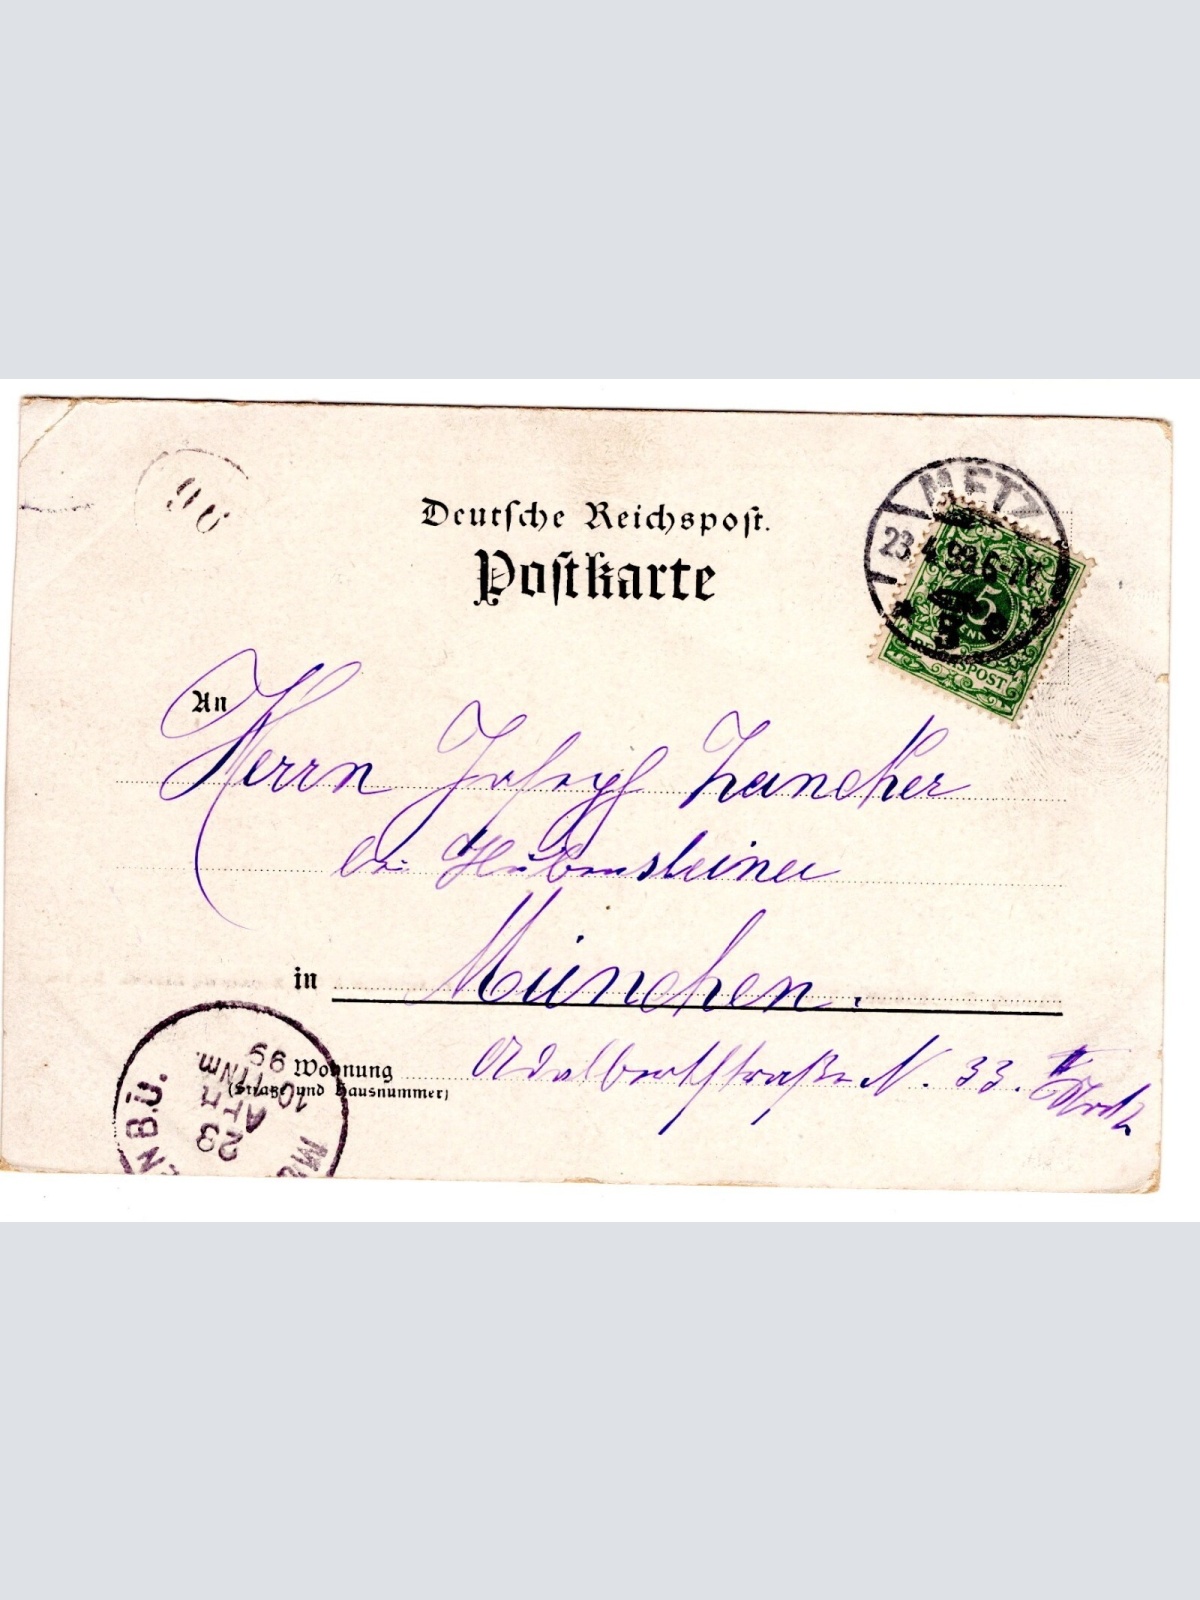 90
Deutsche Reichspost.
Postkarte
METZ
23.4.99.6-7N.
5
REICHSPOST
An
Herrn Joseph Lancker
bei Hübensteiner
in München.
Wohnung Adalbertstraße N. 33.
(Straße und Hausnummer)
23
APR
10-11Nm.
99